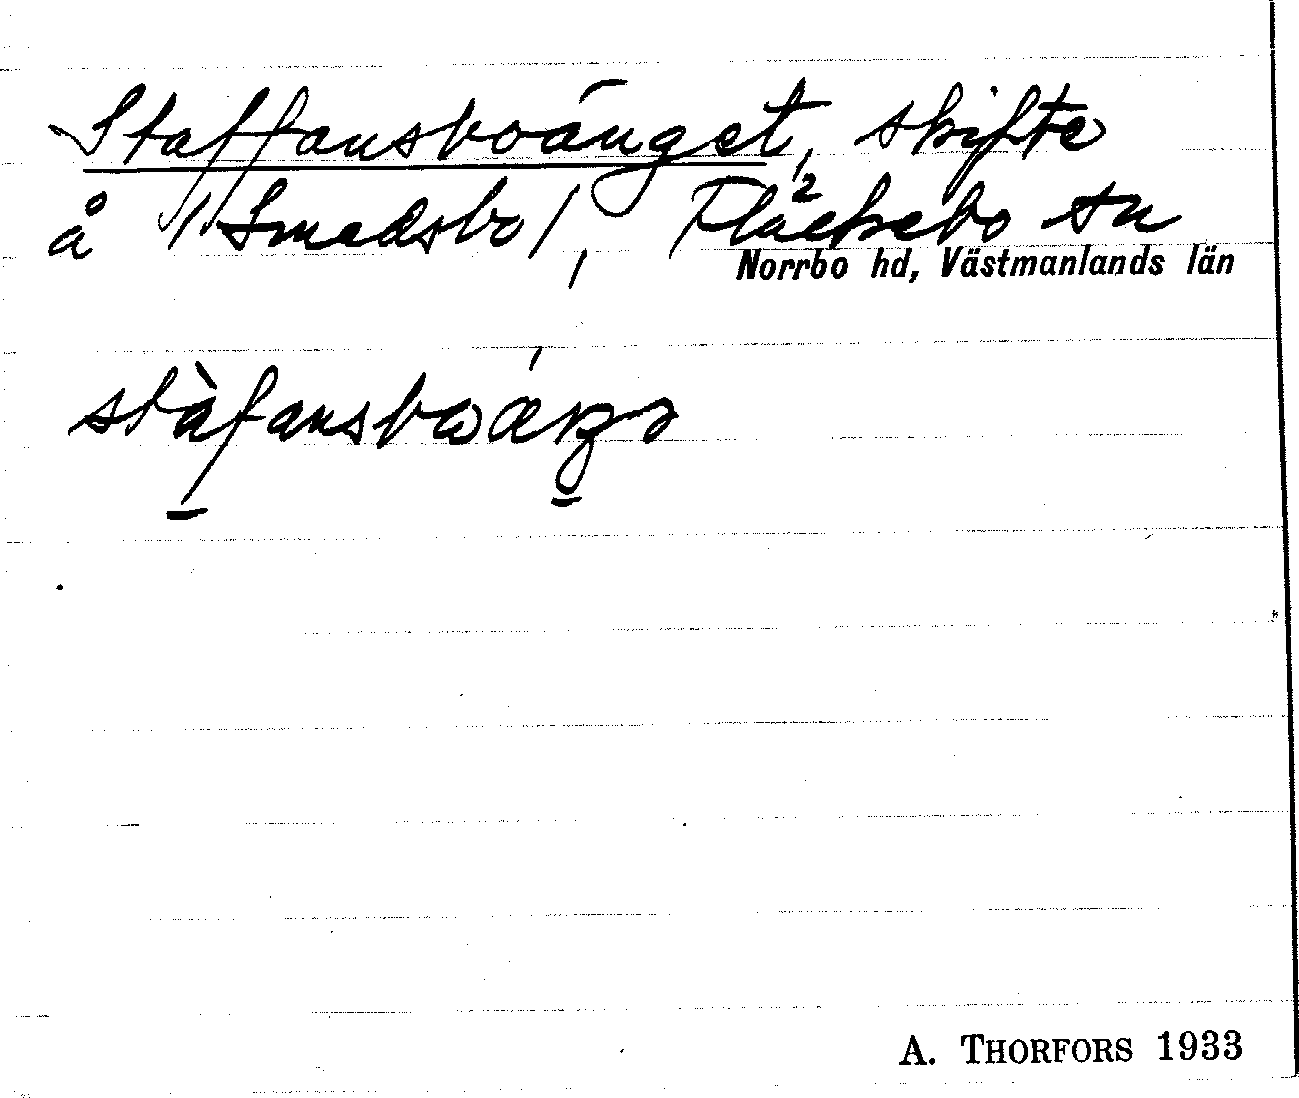 Staffansboänget, skifte
å /Smedsbo/, Fläckebo sn
Norrbo hd, Västmanlands län
stàfansbωǽŋə
A. THORFORS 1933